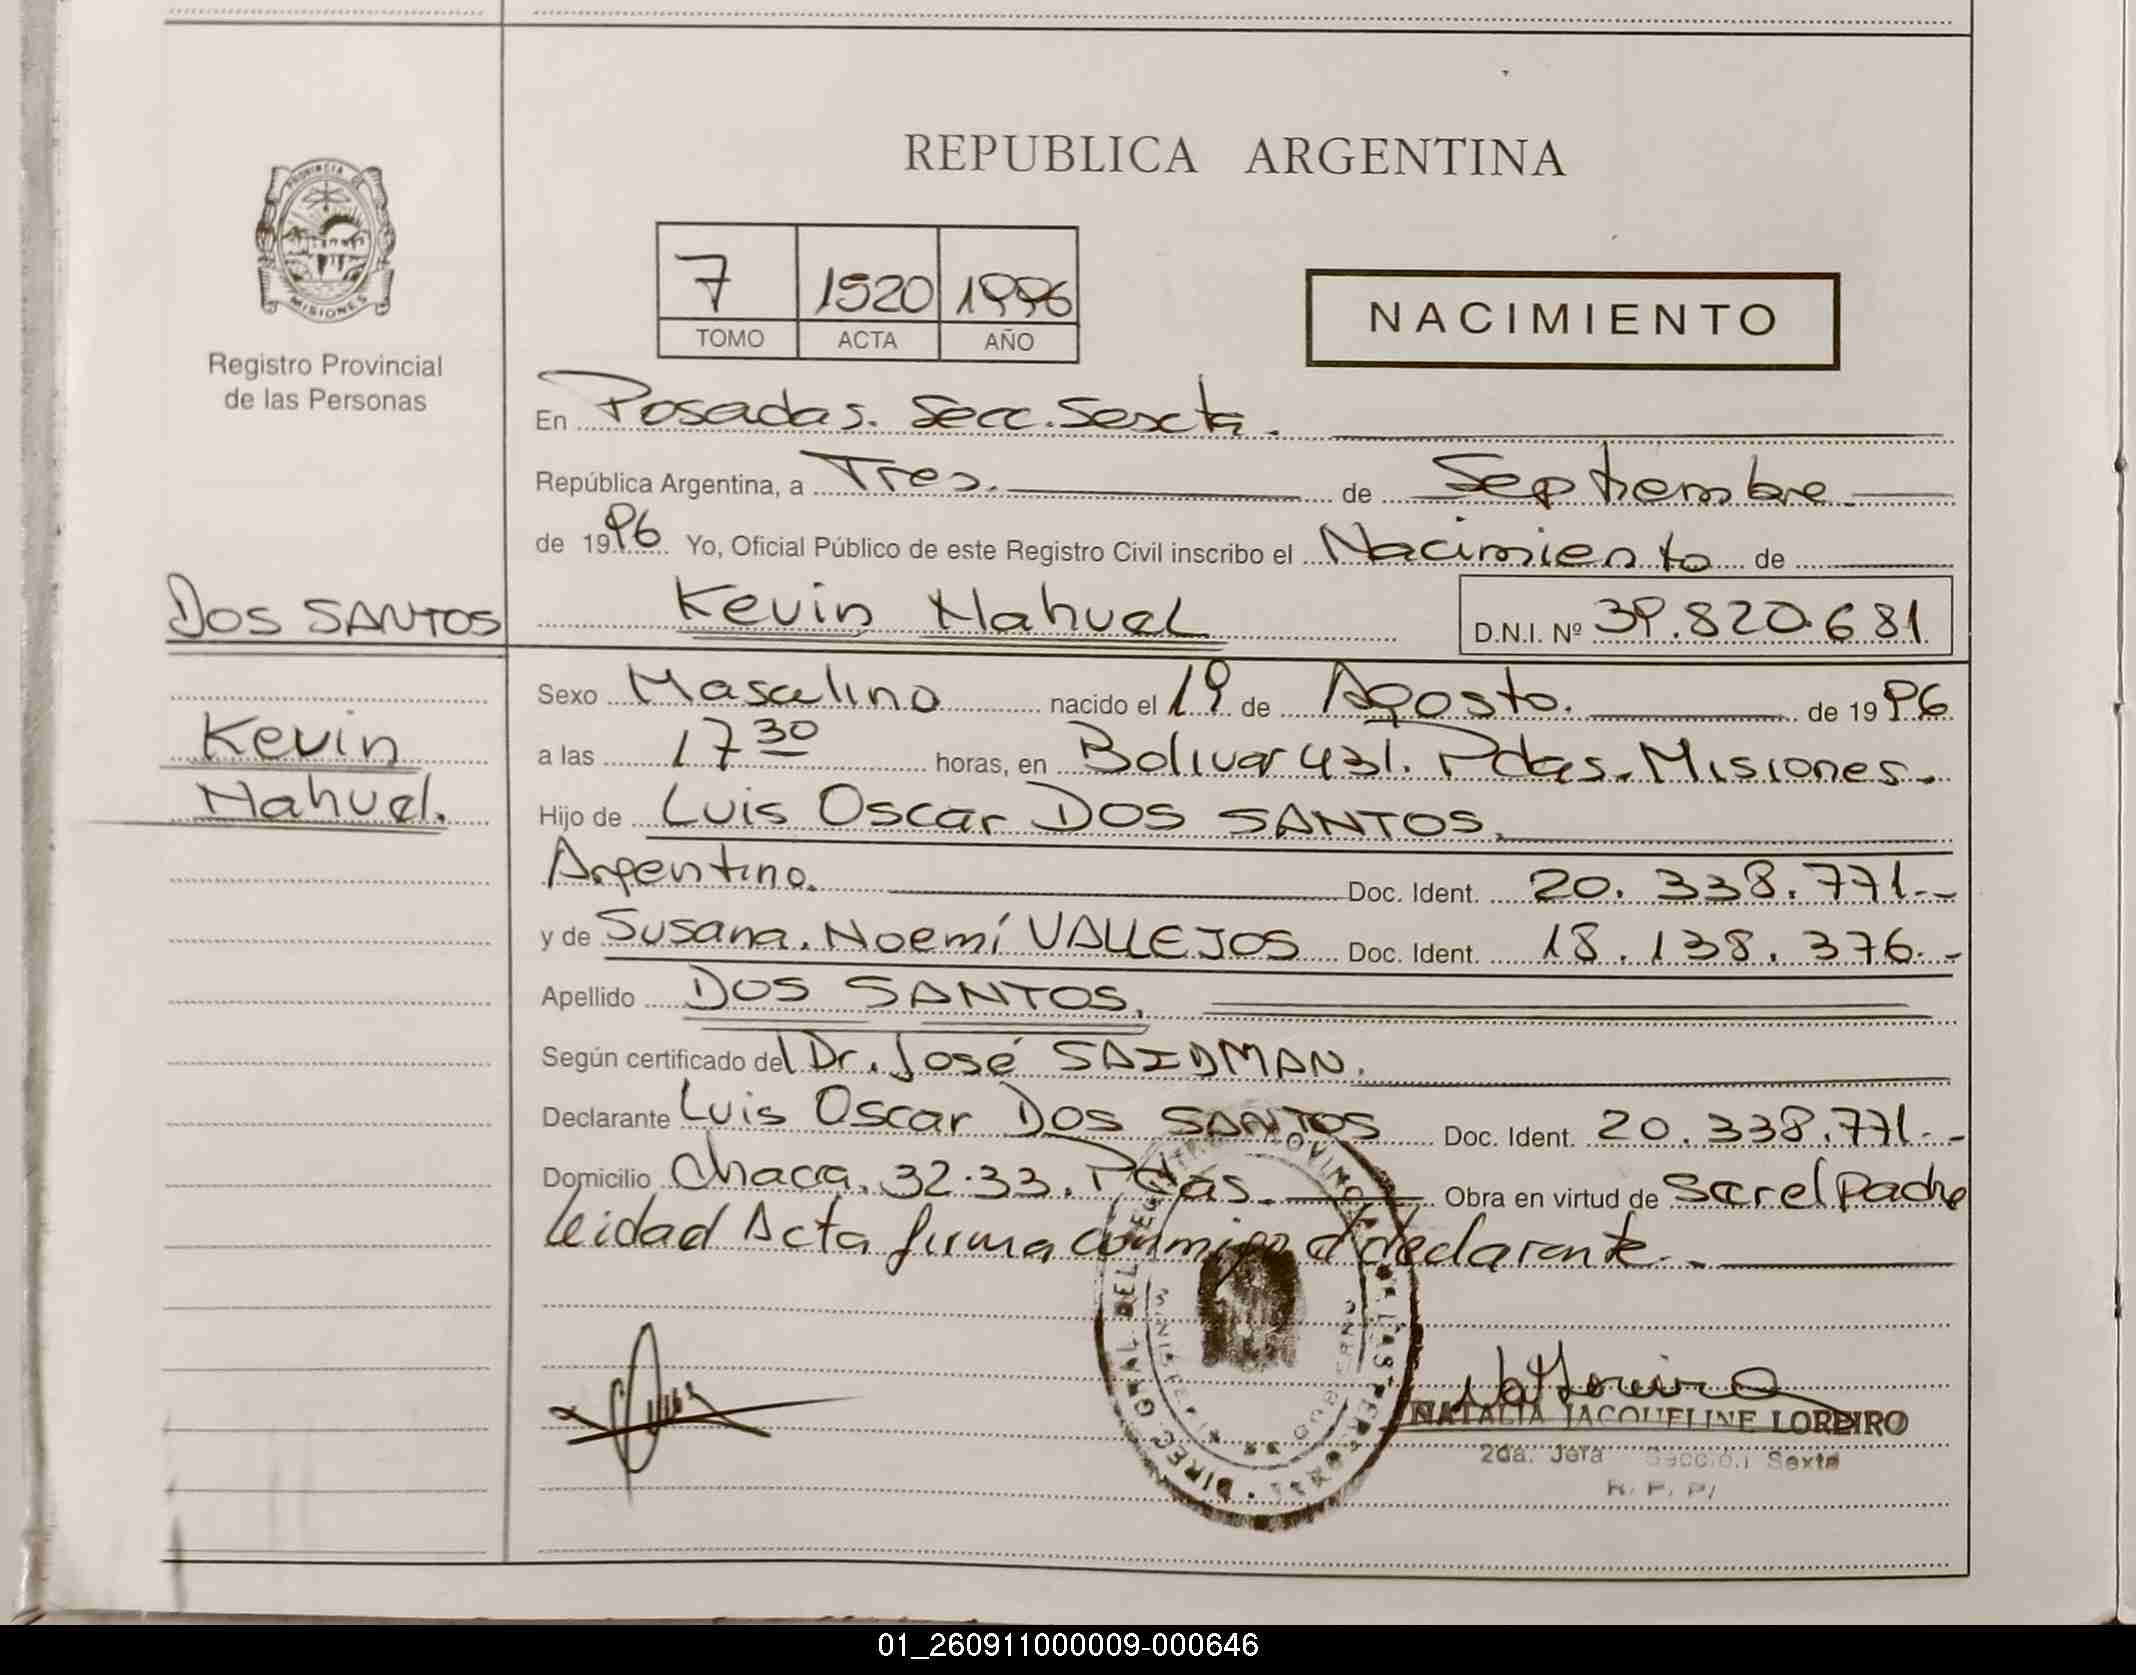 REPUBLICA ARGENTINA
PROVINCIA DE
MISIONES
Registro Provincial
de las Personas
7 1520 1996
TOMO ACTA AÑO
NACIMIENTO
En Posadas. Secc. Sexta.
República Argentina, a Tres. de Septiembre
de 1996 Yo, Oficial Público de este Registro Civil inscribo el Nacimiento de
DOS SANTOS
Kevin Nahuel D.N.I. Nº 39.820.681
Sexo Masculino nacido el 19 de Agosto. de 1996
Kevin
a las 17 30 horas, en Bolivar 431. Pdas. Misiones.
Nahuel.
Hijo de Luis Oscar DOS SANTOS.
Argentino. Doc. Ident. 20.338.771.-
y de Susana. Noemí VALLEJOS Doc. Ident. 18.138.376.-
Apellido DOS SANTOS.
Según certificado del Dr. José SAIDMAN.
Declarante Luis Oscar DOS SANTOS Doc. Ident. 20.338.771.-
Domicilio Chaca. 32-33. Pdas. Obra en virtud de ser el Padre
leidad Acta firma conmigo el declarante.
DIREC. GRAL. DEL
NATALIA JACQUELINE LOREIRO
2da. Jefa Sección Sexta
R. P. P.
01_260911000009-000646